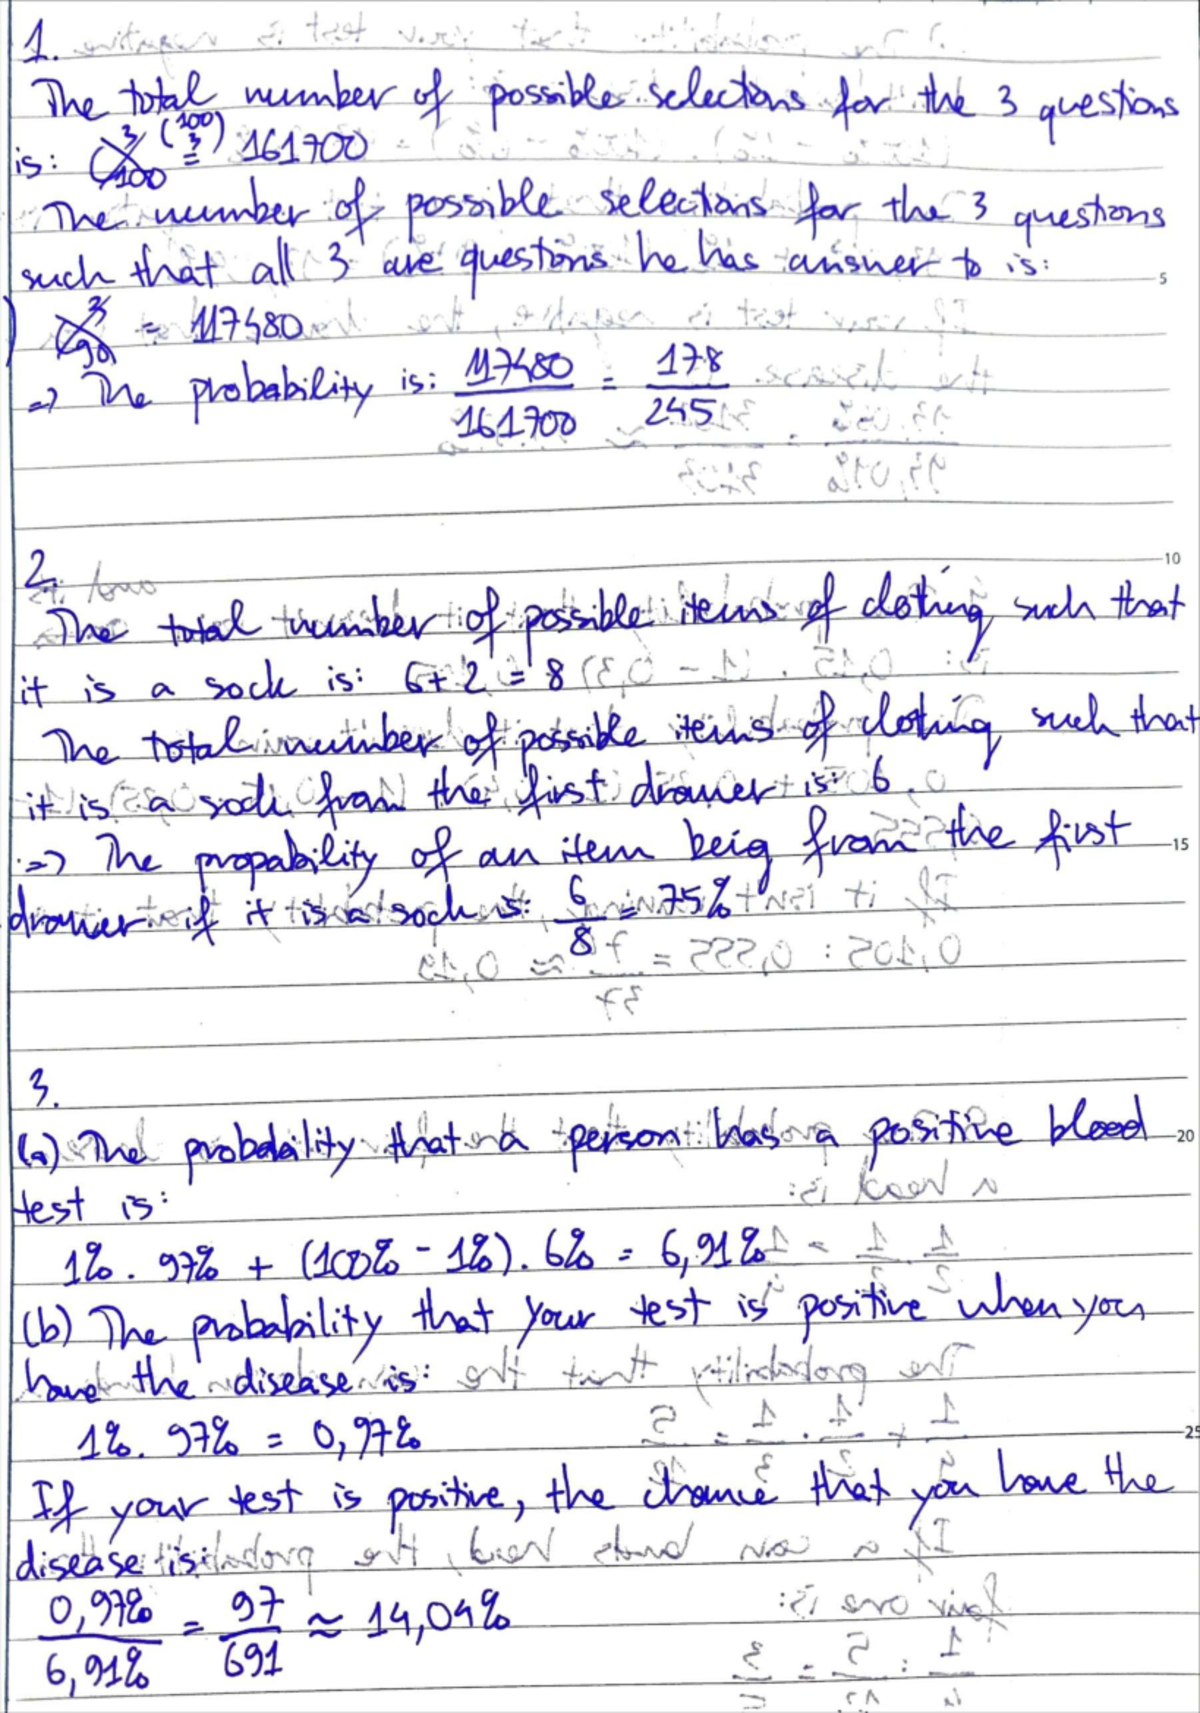 1.
The total number of possible selections for the 3 questions
is: (100 3) = 161700
The number of possible selections for the 3 questions
such that all 3 are questions he has answer to is:
= 117480
5
=> The probability is: 117480/161700 = 178/245
10
2.
The total number of possible items of cloting such that
it is a sock is: 6+2 = 8
The total number of possible items of cloting such that
it is a sock from the first drawer is: 6
=> The propability of an item beig from the first
15
drawer if it is a sock is: 6/8 = 75%
3.
(a) The probability that a person has a positive blood
20
test is:
1%. 97% + (100% - 1%). 6% = 6,91%
(b) The probability that your test is positive when you
have the disease is:
1%. 97% = 0,97%
25
If your test is positive, the chance that you have the
disease is:
0,97%/6,91% = 97/691 ≈ 14,04%